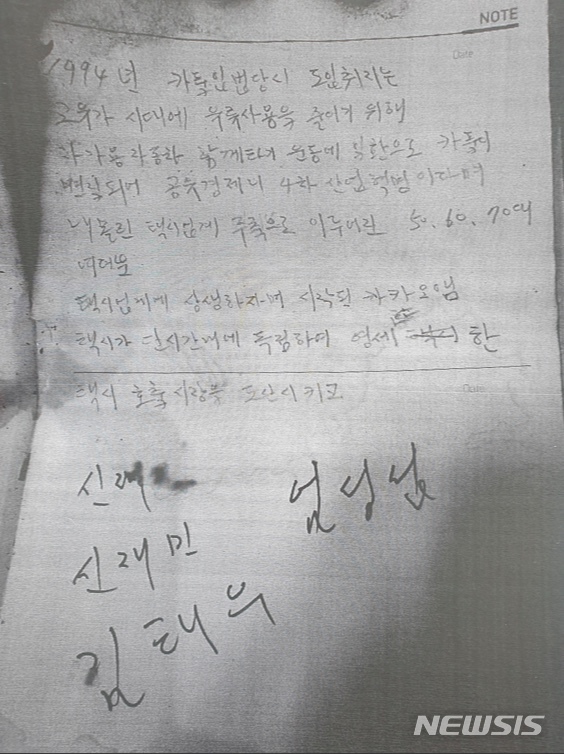 NOTE
Date
1994년 카풀입법당시 도입취지는
고유가 시대에 유류사용을 줄이기 위해
자가용자동차 함께타기 운동에 일환으로 카풀이
변질되어 공유경제니 4차 산업혁명이다며
내몰린 택시업계 주축으로 이루어진 50. 60. 70대
택시업계에 상생하자며 시작된 카카오앱
택시가 단시간내에 독점하여 영세한
Date
택시 호출시장을 도산시키고
신재
엄성섭
신재민
김태우
NEWSIS